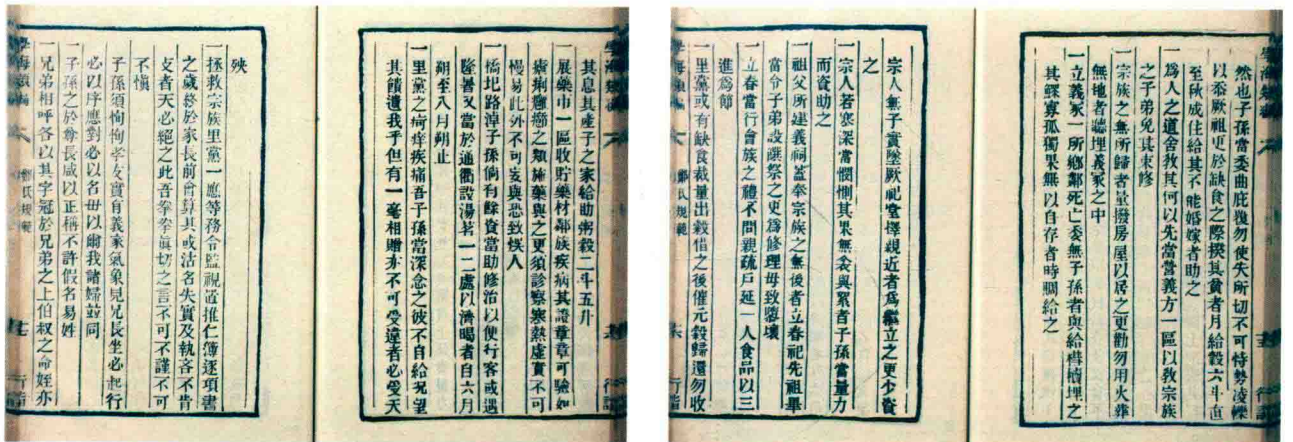 學海類編
然也子孫當委曲庇覆勿使失所切不可恃勢凌轢
以忝厥祖更於缺食之際揆其貧者月給穀六斗直
至秋成住給其不能婚嫁者助之
一爲人之道舍教其何以先當營義方一區以敎宗族
之子弟免其束修
一宗族之無所歸者量撥房屋以居之更勸勿用火葬
無地者聽埋義冢之中
一立義冢一所鄉鄰死亡委無子孫者與給槥櫝埋之
其鰥寡孤獨果無以自存者時賙給之
一宗人無子實墜厥祀當擇親近者爲繼立之更少資
之
一宗人若寒深當憫惻其果無衾與絮者子孫當量力
而資助之
一祖父所建義祠葢奉宗族之無後者立春祀先祖畢
當令子弟設饌祭之更爲修理毋致隳壞
一立春當行會族之禮不問親疏戶延一人食品以三
進爲節
一里黨或有缺食裁量出穀借之後催元穀歸還勿收
學海類編 鄭氏規範
其息其產子之家給助粥穀二斗五升
一展藥市一區收貯藥材鄰族疾病其證章章可驗如
瘧痢癰癤之類施藥與之更須診察寒熱虛實不可
慢易此外不可妄與恐致悞人
一橋圯路淖子孫倘有餘資當助修治以便行客或遇
隆暑又當於通衢設湯茗一二處以濟暍者自六月
朔至八月朔止
一里黨之疴痒疾痛吾子孫當深念之彼不自給况望
其饋遺我乎但有一毫相贈亦不可受違者必受天
殃
一拯救宗族里黨一應等務令監視置推仁簿逐項書
之歲終於家長前會算其或沽名失實及執吝不肯
支者天必絕之此吾拳拳眞切之言不可不謹不可
不愼
一子孫須恂恂孝友實有義家氣象見兄長坐必起行
必以序應對必以名毋以爾我諸婦並同
一子孫之於尊長咸以正稱不許假名易姓
一兄弟相呼各以其字冠於兄弟之上伯叔之命姪亦
學海類編 鄭氏規範